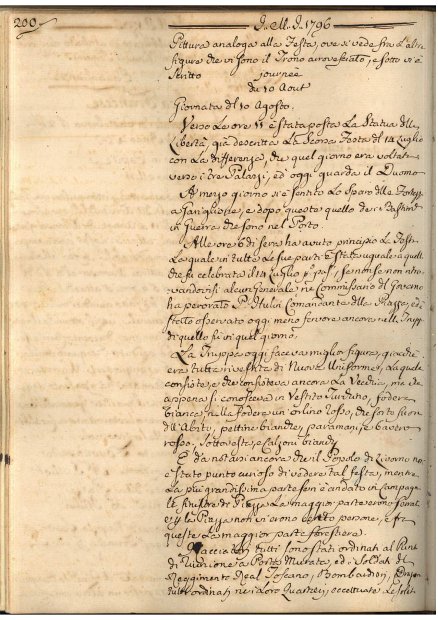 200
J.M.J. 1796
Pittura analoga alla Festa, ove si vede fra l'altre
figure che vi sono il Trono arrovesciato, e sotto vi è
scritto journée
du 10 Aout
Giornata del 10 Agosto.
Verso le ore 11 è stata posta La Statua della
Libertà, già descritta La Scorsa Festa del 14 Luglio
con La differenza, che quel giorno era voltata
verso i tre Palazzi, ed oggi guarda il Duomo
A mezzo giorno si è sentito Lo Sparo delle Fortezze
e dopo questo quello de Bastimenti
in Guerra che sono nel Porto.
Alle ore 6 di sera ha avuto principio La Festa
La quale in tutte Le sue parti è stata uguale a quella
che fu celebrata il 14 Luglio p: pas:, se non se non ritro-
vandovisi alcun Generale, nè Commissario del Governo
ha perorato Comandante della Piazza, ed è
stato osservato oggi meno fervore ancora nella Truppa
di quello fù in quel giorno.
La Truppa oggi faceva miglior figura, giacchè
era tutta rivestita di Nuova Uniforme, La quale
consiste, e che consisteva ancora La Vecchia, ma che
appena si conosceva in Vestito Turchino, fodera
bianca, nella fodera un orlino rosso, che sorte fuori
dell'Abito, pettine bianche, paramani, e bavero
rosso. Sottovesta, e Calzoni bianchi.
E da notarsi ancora che il Popolo di Livorno non
è Stato punto curioso di vedere tal festa, mentre
La più grandissima parte se n'è andato in Campagna
Le finestre di Piazza Le maggior parte erono serrate
e p la Piazza non vi erono cento persone, e fra
queste La maggior parte forestiera.
tutti sono stati ordinati al Punto
di Riunione a Porta Murata, ed i Soldati del
Reggimento Real Toscano, Bombardieri, Dragoni
tutti ordinati ne i Loro Quartieri, eccettuato Le solit